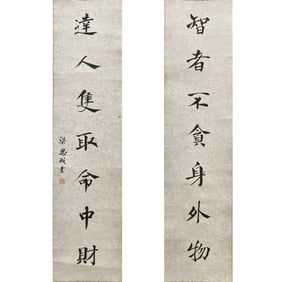 智者不貪身外物
達人隻取命中財
梁思成書